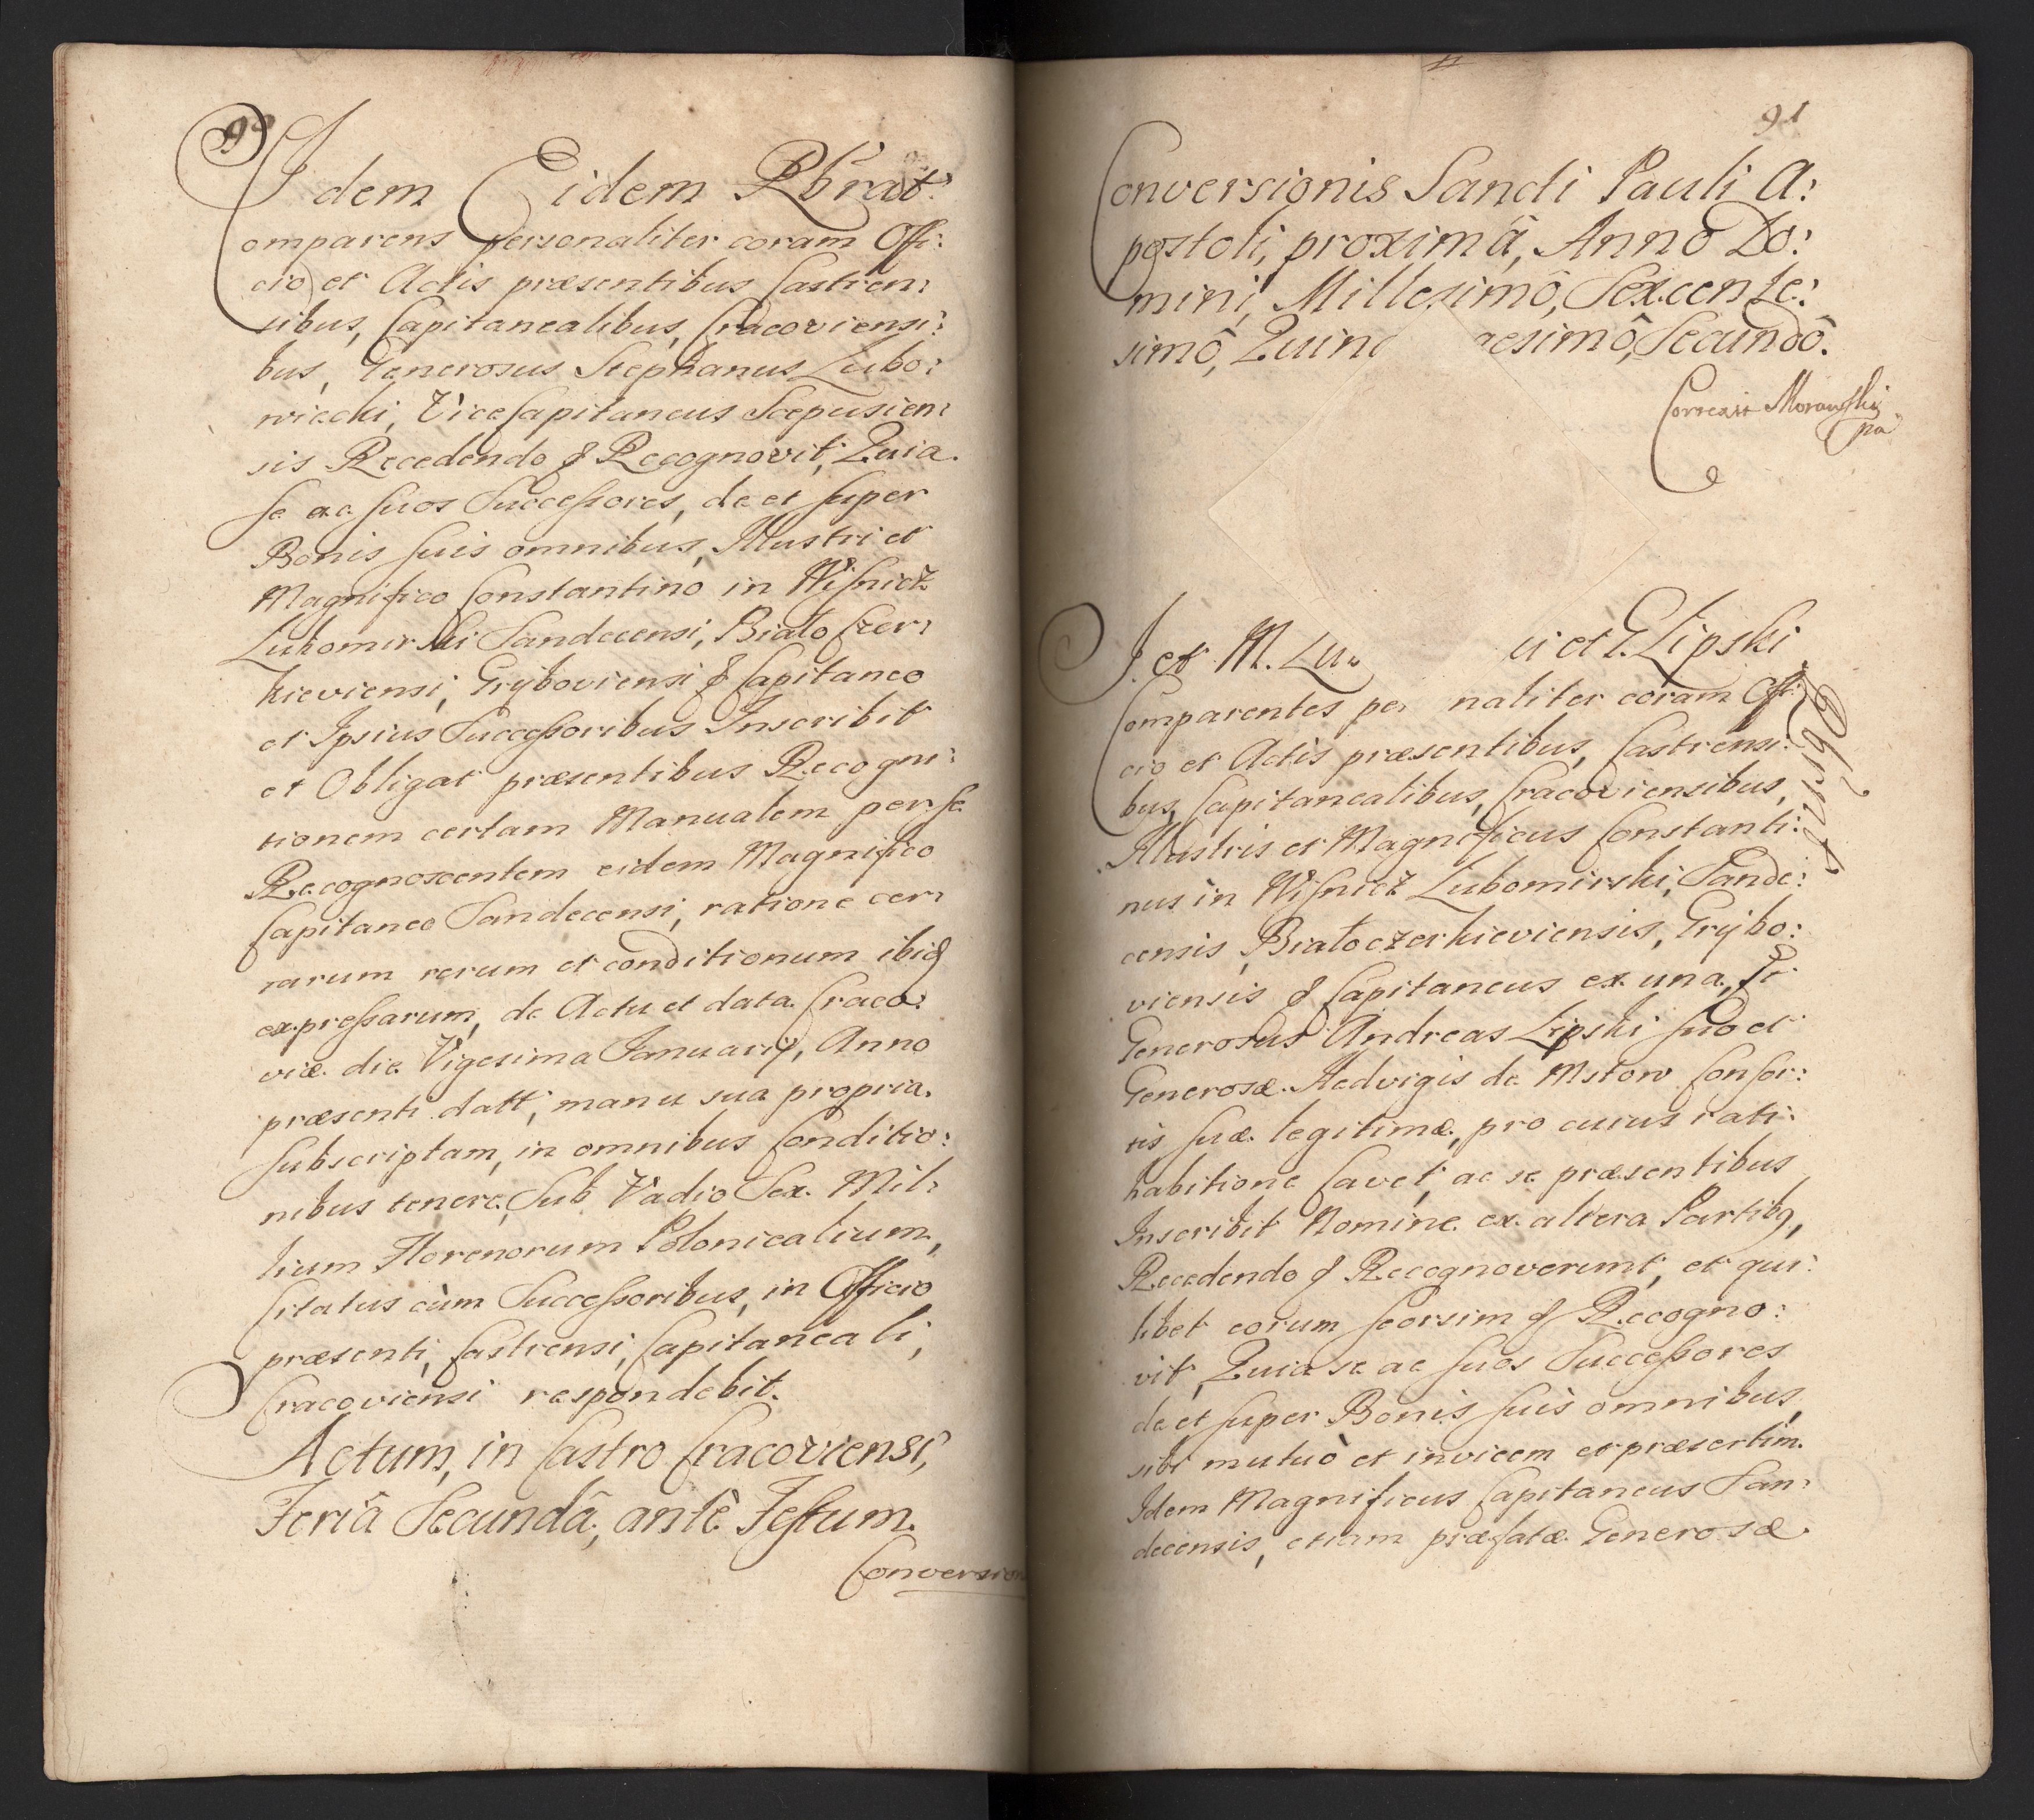 90
Idem Eidem Rbrat:
Comparens personaliter coram Offi:
cio et Actis præsentibus Castren:
sibus, Capitanealibus, Cracoviensi:
bus, Generosus Stephanus Lubo:
wiecki, ViceCapitaneus Scepusien:
sis Recedendo & Recognovit, Quia
se ac suos Successores, de et super
Bonis suis omnibus, Illustri et
Magnifico Constantino in Wisnicz
Lubomirski Sandecensi, Biało Czer:
kieviensi, Grÿboviensi & Capitaneo
et Ipsius Successoribus Inscribit
et Obligat præsentibus Recogni:
tionem certam Manualem per se
Recognoscentem eidem Magnifico
Capitaneo Sandecensi, ratione cer:
tarum rerum et conditionum ibid
expressarum, de Actu et data Craco:
viæ die Vigesima Januarij, Anno
præsenti datt, manu sua propria
subscriptam, in omnibus Conditio:
nibus tenere, Sub Vadio Sex Mil:
lium Florenorum Polonicalium,
Citatus cùm Successoribus, in Officio
præsenti, Castrensi, Capitaneali,
Cracoviensi respondebit.
Actum, in Castro Cracoviensi,
Feriâ Secundâ, antè Festum
Conversion
91
Conversionis Sancti Pauli A:
postoli, proximâ, Annô Do:
mini, Millesimô, Sexcente:
simô, Quin gesimô, Secundô.
Correxit Morawski
mp
J. et M. Lu ki et G. Lipski
Rbrat
Comparentes per naliter coram Offi:
cio et Actis præsentibus, Castrensi:
bus, Capitanealibus, Cracoviensibus,
Illustris et Magnificus Constanti:
nus in Wisnicz Lubomirski, Sande:
censis, Białoczerkieviensis, Grÿbo:
viensis & Capitaneus ex una, Et
Generosus Andreas Lipski suo et
Generosæ Hedvigis de Mstow Consor:
tis suæ legitimæ, pro cuius rati:
habitione Cavet, ac se præsentibus
Inscribit Nomine ex altera Partibq,
Recedendo & Recognoverunt, et qui:
libet eorum seorsim & Recogno:
vit, Quia se ac suos Successores
de et super Bonis suis omnibus,
sibi mutuò et invicem et præsertim
Idem Magnificus Capitaneus San:
decensis, etiam præfatæ Generosæ